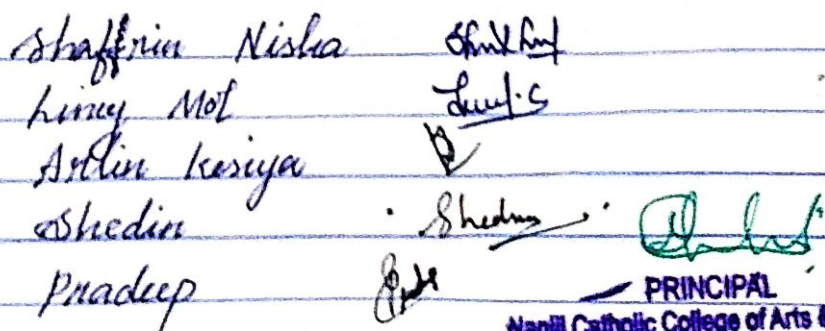 Shaffrin Nisha
Liney Mol
Artlin kesiya
Shedin Shedin
Pradeep
PRINCIPAL
Nanjil Catholic College of Arts &